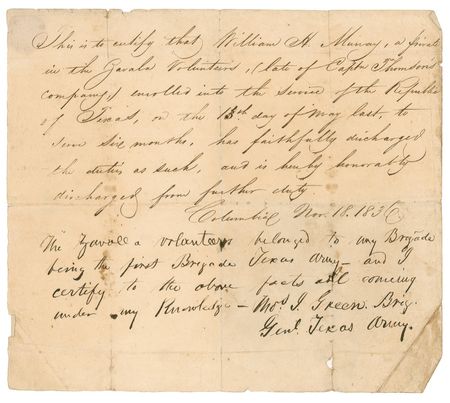 This is to certify that William H. Murray, a privat
in the Zavala Volunteers, (late of Captn Thomson's
company,) enrolled into the Service of the Republic
of Texas, on the 13th day of May last, to
serve six months, has faithfully discharged
the duties as such, and is hereby honorably
discharged from further duty.
Columbia Nov. 18. 1836
The Zavalla volunteers belonged to my Brigade
being the first Brigade Texas Army – and I
certify to the above facts all coming
under my Knowledge – Thos J. Green. Brig.
Genl. Texas Army.